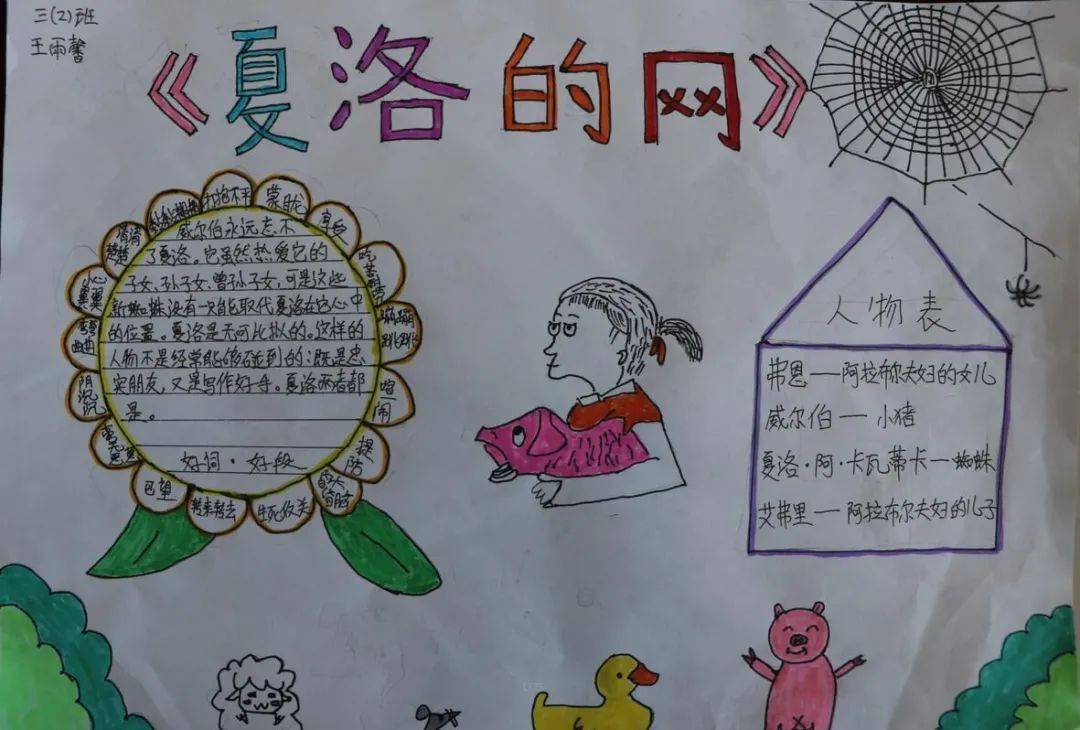 三(2)班
王雨馨
《夏洛的网》
打抱不平
蒙眬
享受
嗡闹
提防
生死攸关
转来转去
巴望
阴沉沉
弯弯曲曲
小心翼翼
清清楚楚
威尔伯永远忘不
了夏洛。它虽然热爱它的
子女、孙子女、曾孙子女,可是这些
新蜘蛛没有一只能取代夏洛在它心中
的位置。夏洛是无可比拟的。这样的
人物不是经常能够碰到的:既是忠
实朋友,又是写作好手。夏洛两者都
是。
好词·好段
人物表
弗恩——阿拉布尔夫妇的女儿
威尔伯——小猪
夏洛·阿·卡瓦蒂卡—蜘蛛
艾弗里——阿拉布尔夫妇的儿子